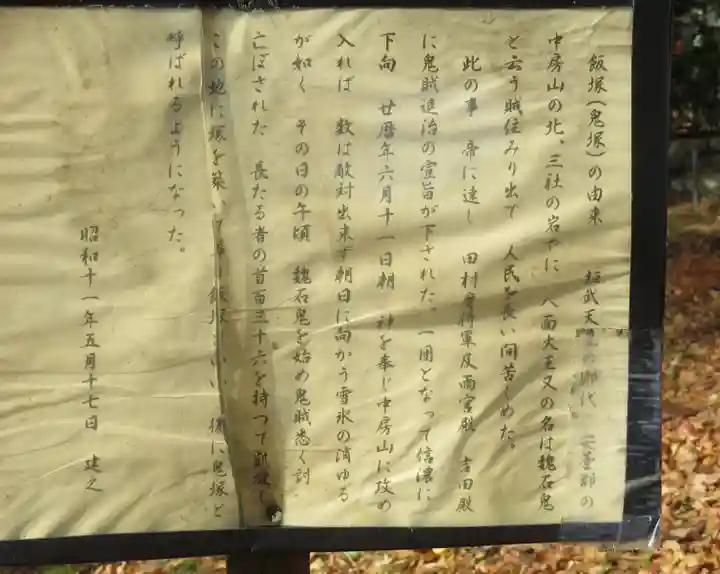 飯塚(鬼塚)の由来　桓武天皇の御代　安曇郡の
中房山の北、三社の岩下に 八面大王又の名は魏石鬼
と云う賊住みり出で 人民を長い間苦しめた。
此の事 帝に達し 田村 将軍及雨宮殿 吉田殿
に鬼賊退治の宣旨が下された。一団となって信濃に
下向 廿暦年六月十一日朝 神を奉じ中房山に攻め
入れば 数は敵対出来ず朝日に向かう雪氷の消ゆる
が如く その日の午頃 魏石鬼を始め鬼賊悉く討
亡ぼされた 長たる者の首百三十六を持って凱旋し
この地に塚を築いて 飯塚といい 後に鬼塚と
呼ばれるようになった。
昭和十一年五月十七日 建之